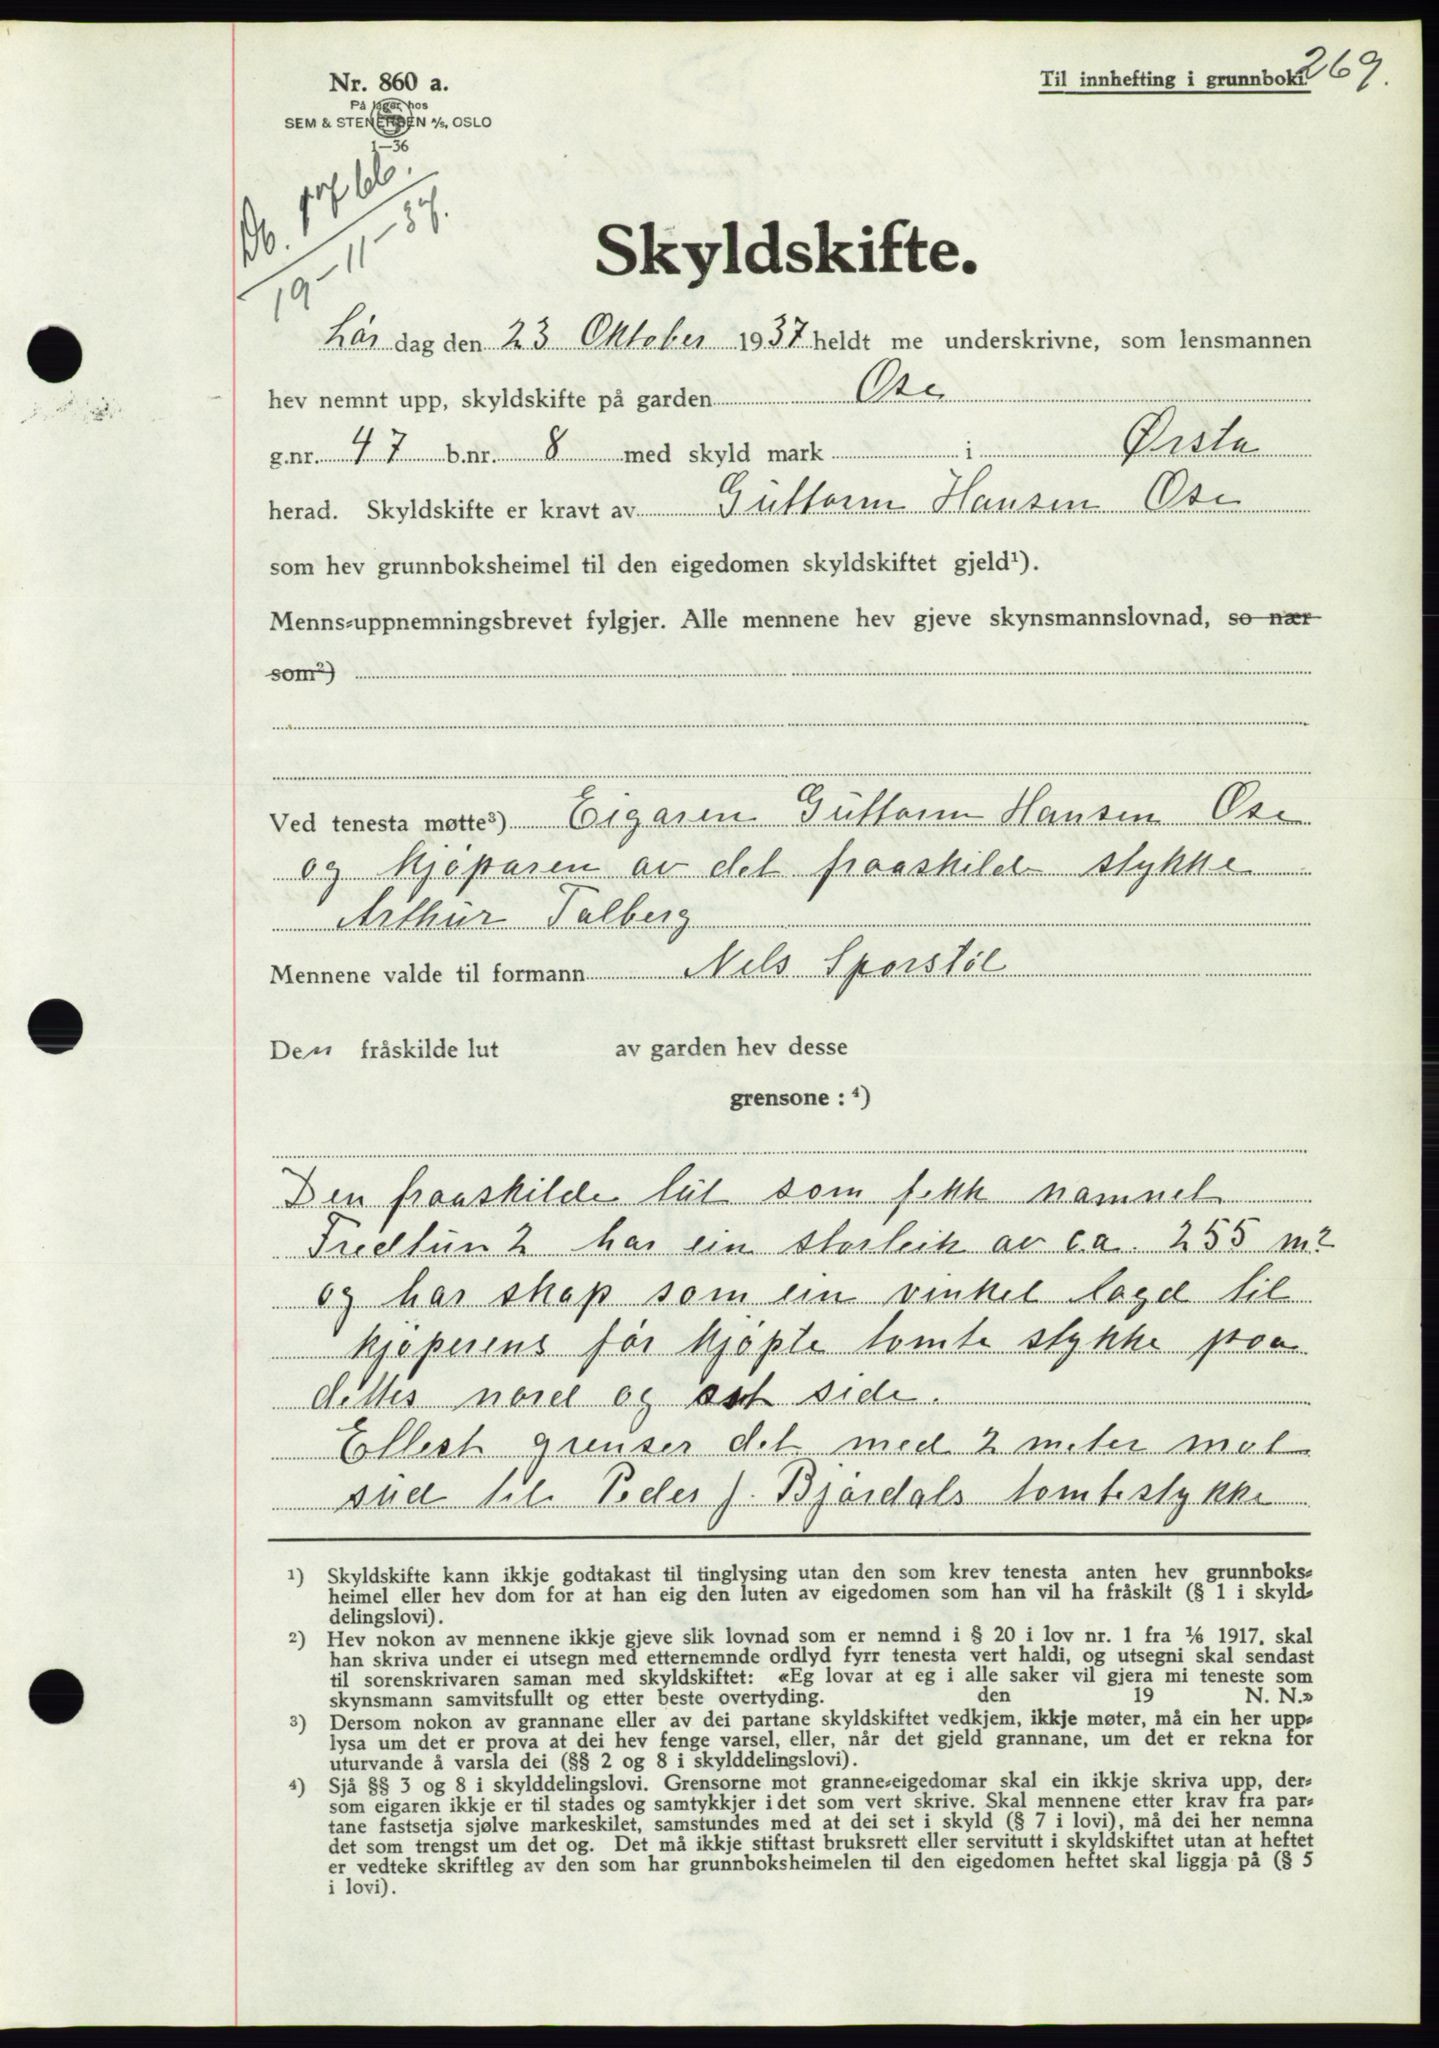 269.
Til innhefting i grunnboki
Nr. 860 a.
På lager hos
SEM & STENERSEN A/S, OSLO
1—36
Db.
19-11-37.
Skyldskifte.
Lör dag den 23 Oktober 1937 heldt me underskrivne, som lensmannen
hev nemnt upp, skyldskifte på garden Ose
g.nr. 47 b.nr. 8 med skyld mark i Ørsta
herad. Skyldskifte er kravt av Guttorm Hansen Ose
som hev grunnboksheimel til den eigedomen skyldskiftet gjeld¹).
Menns-uppnemningsbrevet fylgjer. Alle mennene hev gjeve skynsmannslovnad, so nær
som²)
Ved tenesta møtte³) Eigaren Guttorm Hansen Ose
og kjöparen av det fraaskilde stykke
Arthur Talberg
Mennene valde til formann Nils Sporstöl
Den fråskilde lut av garden hev desse
grensone : ⁴)
Den fraaskilde lut som fekk namnet
Fredtun 2 har ein storleik av ca. 255 m²
og har skap som ein vinkel lagd til
kjöperens för kjöpte tomte stykke paa
dettes nord og ost side.
Ellest grenser det med 2 meter mot
sud til Peder J. Björdals tomtestykke
¹) Skyldskifte kann ikkje godtakast til tinglysing utan den som krev tenesta anten hev grunnboks-
heimel eller hev dom for at han eig den luten av eigedomen som han vil ha fråskilt (§ 1 i skyld-
delingslovi).
²) Hev nokon av mennene ikkje gjeve slik lovnad som er nemnd i § 20 i lov nr. 1 fra 1/6 1917, skal
han skriva under ei utsegn med etternemnde ordlyd fyrr tenesta vert haldi, og utsegni skal sendast
til sorenskrivaren saman med skyldskiftet: «Eg lovar at eg i alle saker vil gjera mi teneste som
skynsmann samvitsfullt og etter beste overtyding. den 19 N. N.»
³) Dersom nokon av grannane eller av dei partane skyldskiftet vedkjem, ikkje møter, må ein her upp-
lysa um det er prova at dei hev fenge varsel, eller, når det gjeld grannane, um det er rekna for
uturvande å varsla dei (§§ 2 og 8 i skylddelingslovi).
⁴) Sjå §§ 3 og 8 i skylddelingslovi. Grensorne mot granne-eigedomar skal ein ikkje skriva upp, der-
som eigaren ikkje er til stades og samtykkjer i det som vert skrive. Skal mennene etter krav fra par-
tane fastsetja sjølve markeskilet, samstundes med at dei set i skyld (§ 7 i lovi), må dei her nemna
det som trengst um det og. Det må ikkje stiftast bruksrett eller servitutt i skyldskiftet utan at heftet
er vedteke skriftleg av den som har grunnboksheimelen til den eigedomen heftet skal liggja på (§ 5
i lovi).